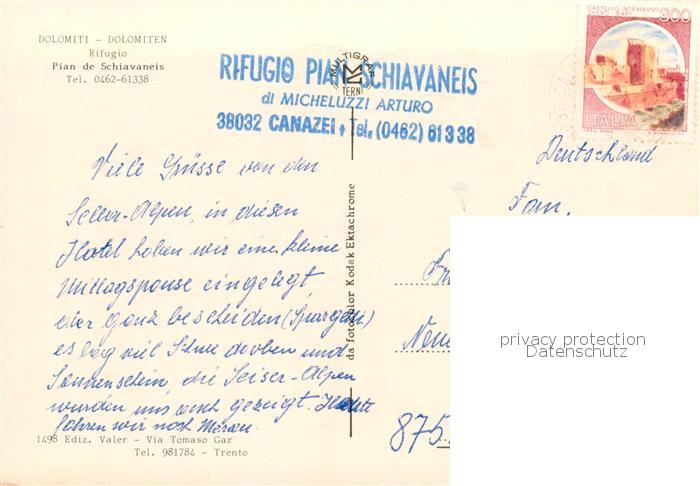 DOLOMITI - DOLOMITEN
Rifugio
Pian de Schiavaneis
Tel. 0462-61338
MULTIGRAF
TERNI
RIFUGIO PIAN SCHIAVANEIS
di MICHELUZZI ARTURO
38032 CANAZEI Tel. (0462) 61338
CASTELLO NORMANNO
SVEVO BARI
300
ITALIA
Deutschland
Fam.
875
Viele Grüsse von den
Seller-Alpen, in diesen
Hotel haben wir eine kleine
Mittagspause eingelegt
aber ganz bescheiden
es lag viel Schnee droben und
Sonnenschein, die Seiser-Alpen
wurden uns auch gezeigt. Heute
fahren wir noch Meran.
da fotocolor Kodak Ektachrome
1498 Ediz. Valer - Via Tomaso Gar
Tel. 981784 - Trento
privacy protection
Datenschutz